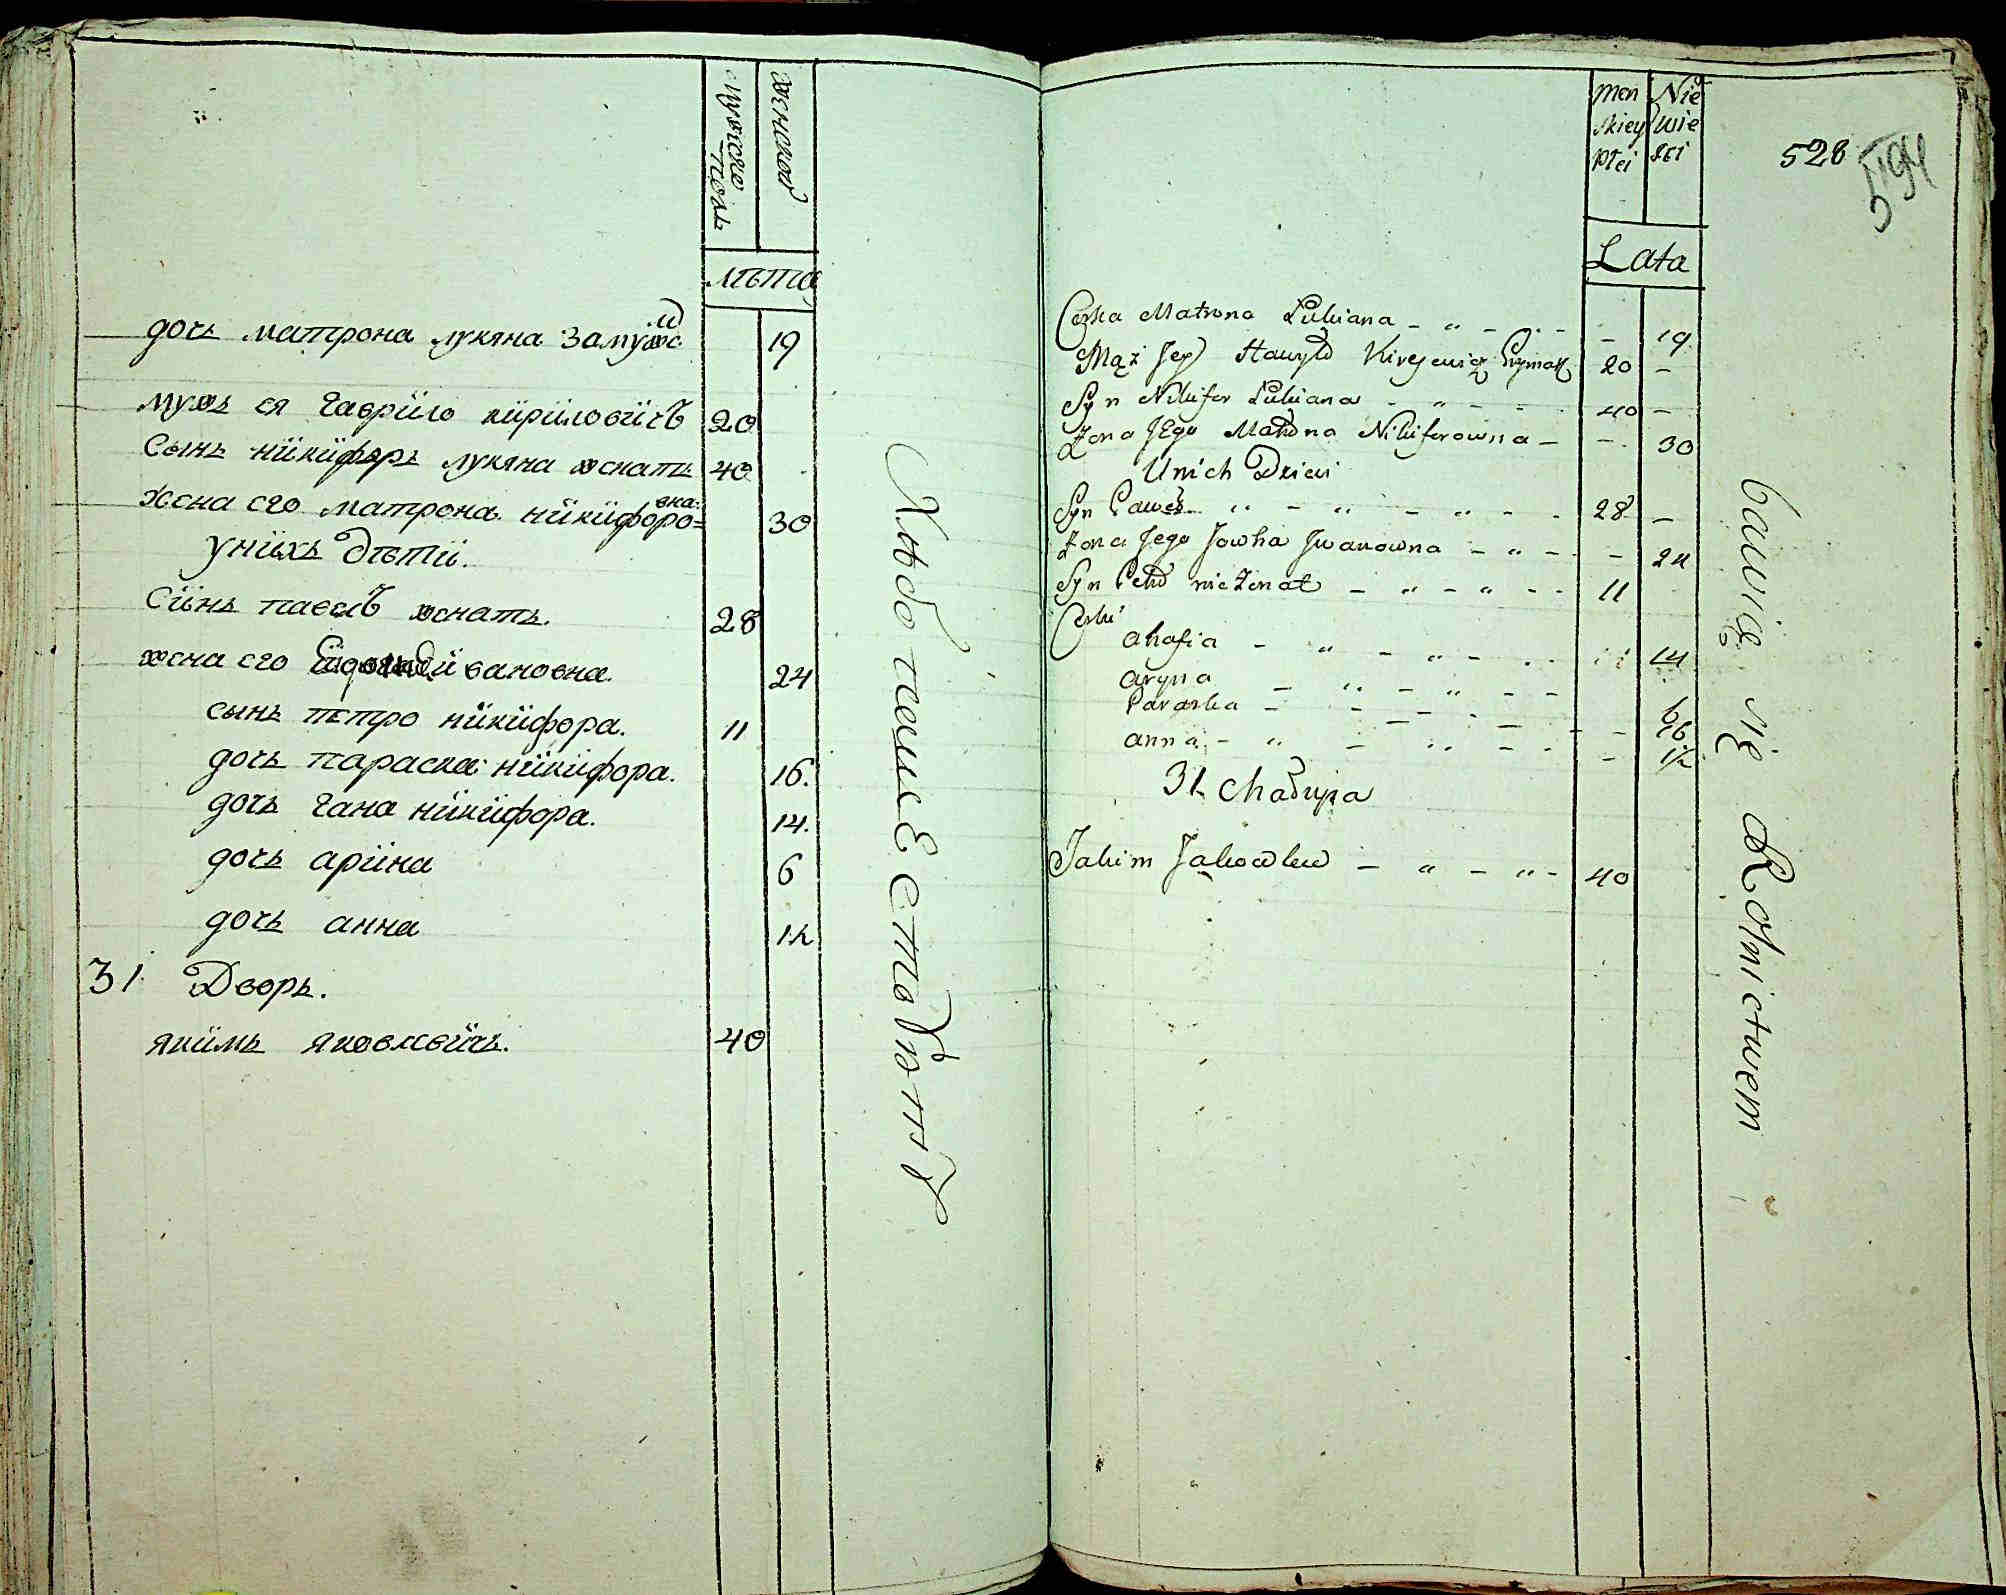 мужска полъ
женскаѡ
лѣта
дочь матрона лукяна замужо м 19
мужъ ея гаврїло кїрїловїчъ 20
Сынъ нїкїфоръ лукяна женатъ 40
жена его матрона нїкїфоро= вна. 30
унїхъ дѣтїї.
Сїнъ павелъ женатъ. 28
жена его ївановна. 24
сынъ петро нїкїфора. 11
дочь параска нїкїфора. 16.
дочь гана нїкїфора. 14.
дочь арїна 6
дочь анна 1½
31. Дворъ.
якїмъ яковлевїчъ. 40
Хлѣбо
men skiey płci
Nie wie sci
528
594
Lata
Corka Matrona Lukiana 19
Mąż Jey Hawryło 20 -
Syn Nikifor Lukiana 40 -
Żona Jego Matrona Nikiforowna - 30
U nich Dzieci
Syn Paweł 28 -
Żona Jego Jowha Iwanowna - 24
Syn Petro nie żonat 11
Corki
ahafia 14
aryna 6
Paraska 16
anna 1½
31. chałupa
Jakim Jakowlew 40
bawią się Rolnictwem